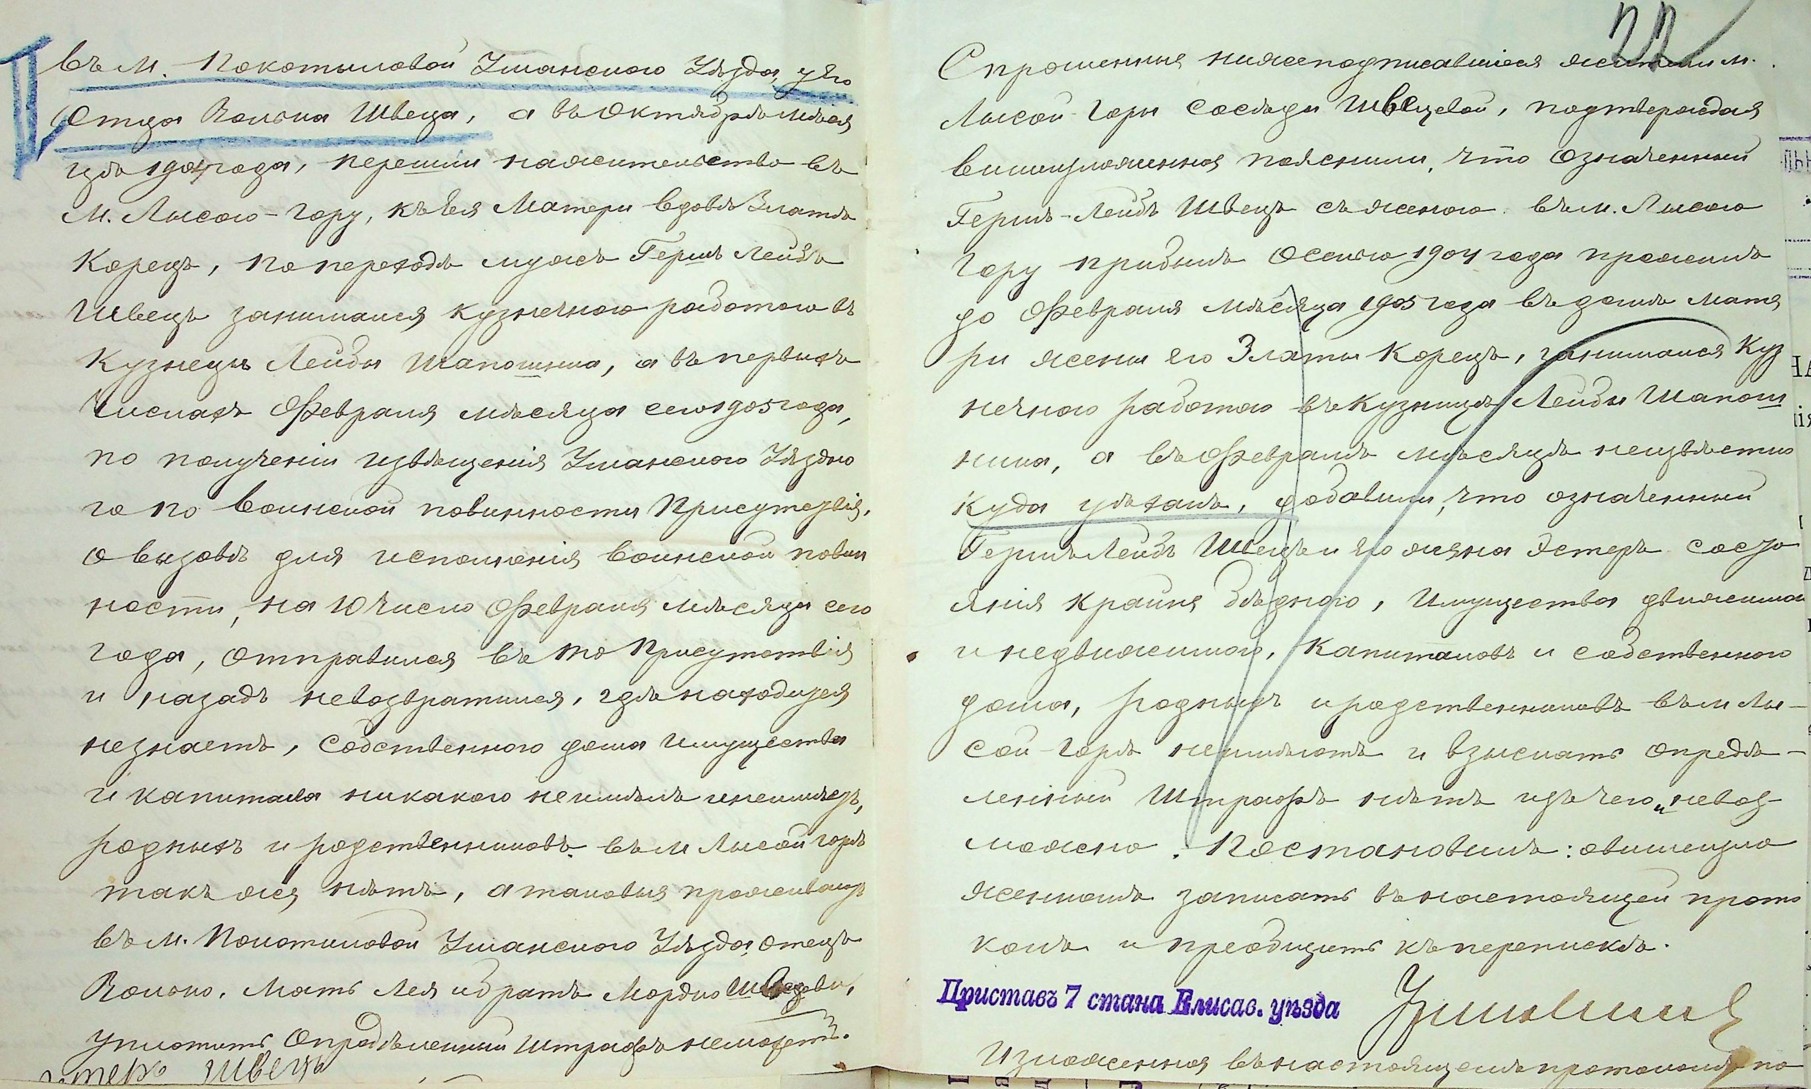 въ м. Покотиловой Уманскаго Уѣзда, у его
Отца Волька Швеца, а въ Октябрѣ мѣся
цѣ 1904 года, перешли нажительство въ
м. Лысою-гору, къ Ея Матери вдовѣ Златѣ
Корецъ, по переходѣ мужъ Гершъ Лейбъ
Швецъ занимался кузнечною работою въ
Кузнецы Лейбы Шапошника, а въ первыхъ
Числахъ Февраля мѣсяца сего 1905 года,
по полученіи извѣщенія Уманскаго Уѣздна
го по воинской повинности Присутствія,
о вызовѣ для исполненія воинской повин
ности, на 10 число Февраля мѣсяца сего
года, отправился въ то Присутствія
и назадъ невозвратился, гдѣ находится
незнаетъ, Собственного дома имущества
и капитала никакого неимѣлъ и неимѣетъ,
родныхъ и родственниковъ въ м Лысой горѣ
такъ же нѣтъ, а таковыя проживаютъ
въ м. Покотиловой Уманскаго Уѣзда, отецъ
Волько, Мать Лея и братъ Мордко Швецовы,
уплотить Опредѣленный штрафъ неможетъ.
Эстеръ Швецъ
22
Спрошенныя нижеподписавшіеся жители м.
Лысой Горы сосѣди Швецевой, подтверждая
вышеизложенное пояснили, что означенный
Гершъ-Лейбъ Швецъ съ женою въ м. Лысою
гору прибылъ осенью 1904 года проживъ
до Февраля мѣсяца 1905 года въ домѣ мате
ри жены его Златы Корецъ, занимался Куз
нечною работою въ Кузницѣ Лейбы Шапош
ника, а въ Февралѣ мѣсяцѣ неизвѣстно
куда уѣхалъ, добавили, что означенный
Гершъ Лейбъ Швецъ и его жена Эстеръ состо
янія крайне бѣдного, Имущества движимого
и недвижимого, Капиталовъ и собственного
дома, родныхъ и родственниковъ въ м Лы-
сой-Горѣ неимѣютъ и взыскать опредѣ-
ленный Штрафъ нѣтъ изъ чего и невоз-
можно. Постановилъ: овышеизло
женномъ записать въ настоящей прото
колъ и преобщить къ перепискѣ.
Приставъ 7 стана Елисав. уѣзда
Изложенное въ настоящемъ протоколѣ по